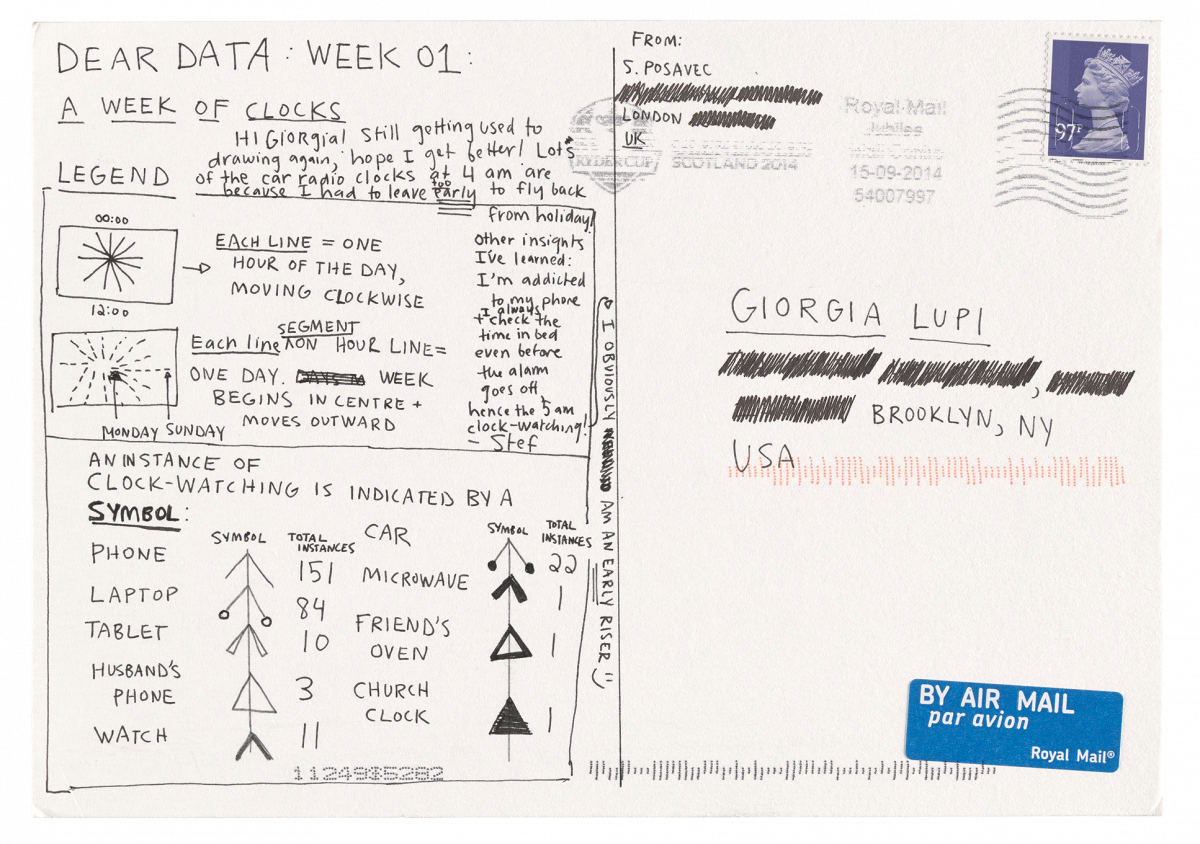 DEAR DATA: WEEK 01:
A WEEK OF CLOCKS
HI GIORGIA! Still getting used to
drawing again, hope I get better! Lots
of the car radio clocks at 4 am are
because I had to leave too early to fly back
from holiday!
LEGEND
00:00
12:00
EACH LINE = ONE
HOUR OF THE DAY,
MOVING CLOCKWISE
Each line SEGMENT ON HOUR LINE=
ONE DAY. WEEK
BEGINS IN CENTRE +
MOVES OUTWARD
MONDAY SUNDAY
Other insights
I've learned:
I'm addicted
to my phone
+ I always check the
time in bed
even before
the alarm
goes off,
hence the 5 am
clock-watching!
- Stef
I OBVIOUSLY AM AN EARLY RISER
AN INSTANCE OF
CLOCK-WATCHING IS INDICATED BY A
SYMBOL:
SYMBOL TOTAL INSTANCES
PHONE 151
LAPTOP 84
TABLET 10
HUSBAND'S PHONE 3
WATCH 11
SYMBOL TOTAL INSTANCES
CAR 22
MICROWAVE 1
FRIEND'S OVEN 1
CHURCH CLOCK 1
FROM:
S. POSAVEC
LONDON
UK
RYDER CUP
SCOTLAND 2014
Royal Mail
Jubilee
15-09-2014
54007997
97P
GIORGIA LUPI
BROOKLYN, NY
USA
BY AIR MAIL
par avion
Royal Mail®